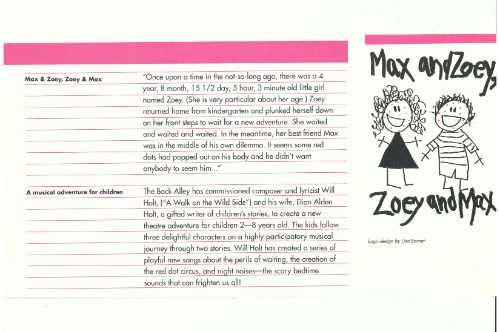 Max & Zoey, Zoey & Max
"Once upon a time in the not-so-long ago, there was a 4
year, 8 month, 15 1/2 day, 5 hour, 3 minute old little girl
named Zoey. (She is very particular about her age.) Zoey
returned home from kindergarten and plunked herself down
on her front steps to wait for a new adventure. She waited
and waited and waited. In the meantime, her best friend Max
was in the middle of his own dilemma. It seems some red
dots had popped out on his body and he didn't want
anybody to seem him..."
A musical adventure for children
The Back Alley has commissioned composer and lyricist Will
Holt, ("A Walk on the Wild Side") and his wife, Dion Alden
Holt, a gifted writer of children's stories, to create a new
theatre adventure for children 2—8 years old. The kids follow
three delightful characters on a highly participatory musical
journey through two stories. Will Holt has created a series of
playful new songs about the perils of waiting, the creation of
the red dot circus, and night noises—the scary bedtime
sounds that can frighten us all!
Max and Zoey,
Zoey and Max
Logo design by Lisa Barnet